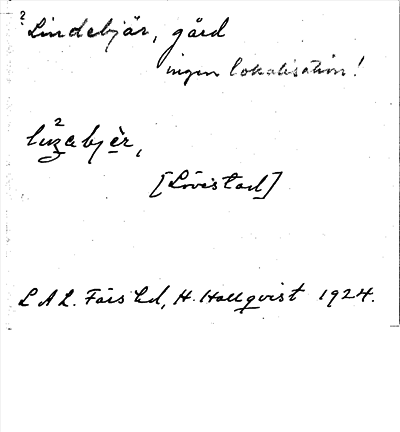 ? Lindebjär, gård
ingen lokalisation!
[Lövestad]
L A L. Färs hd, H. Hallqvist 1924.